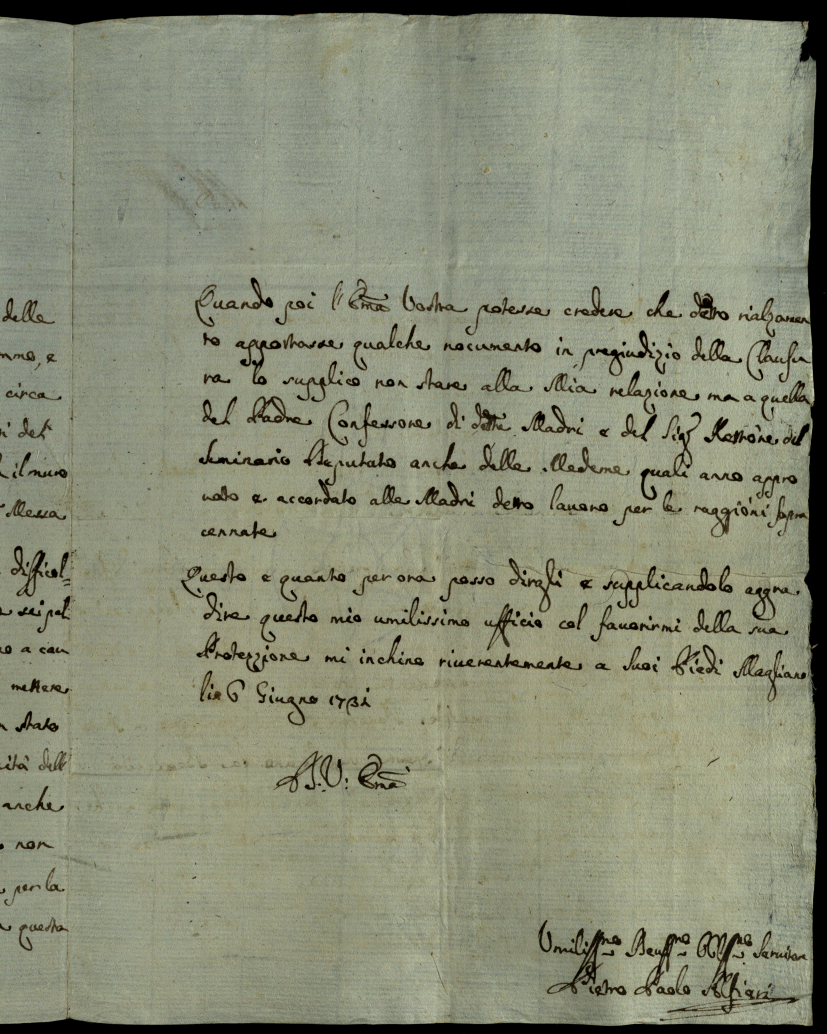 delle
mmo, e
circa
ri det
il muro
Messa
difficol=
sei pal
a cau
mettere
stato
ità dell
anche
non
per la
questa
Quando poi l'Em̃a Vostra potesse credere che detto rialzamen
to apportasse qualche nocumento in pregiudizio della Clausu
ra lo supplico non stare alla Mia relazione ma a quella
del Padre Confessore di dette Madri e del Sig.r Rettore del
Seminario Deputato anche delle Medeme quali anno appro
vato e accordato alle Madri detto lavoro per le raggioni sopra
cennate
Questo e quanto per ora posso dirgli e supplicandolo aggra
dire questo mio umilissimo ufficio col favorirmi della sua
Protezzione mi inchino riverentemente a Suoi Piedi Magliano
li 6 Giugno 1731
D. V: Em̃a
Umiliss.mo Deuss.mo Obliss.mo Servitore
Pietro Paolo Alfieri